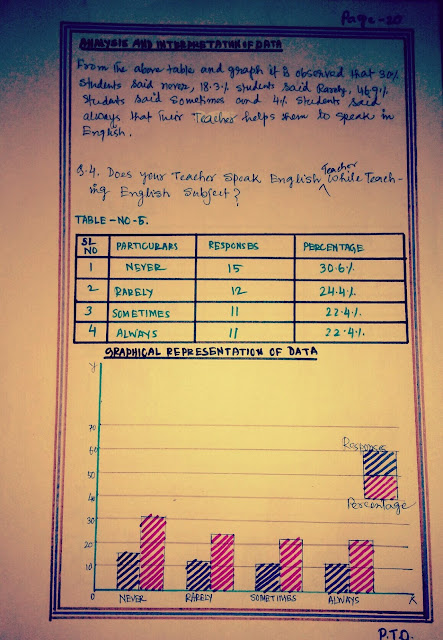 Page-20
ANALYSIS AND INTERPRETATION OF DATA
From the above table and graph it is observed that 30%
students said never, 18.3% students said Rarely, 46.9%
students said sometimes and 4% students said
always that Their Teacher helps them to speak in
English.
Q.4. Does your Teacher Speak English Teacher while Teach-
ing English Subject?
TABLE-NO-5.
SL NO PARTICULARS RESPONSES PERCENTAGE
1 NEVER 15 30.6%
2 RARELY 12 24.4%
3 SOMETIMES 11 22.4%
4 ALWAYS 11 22.4%
GRAPHICAL REPRESENTATION OF DATA
Y
70
60
Responses
50
40
Percentage
30
20
10
0
NEVER RARELY SOMETIMES ALWAYS X
P.T.O.